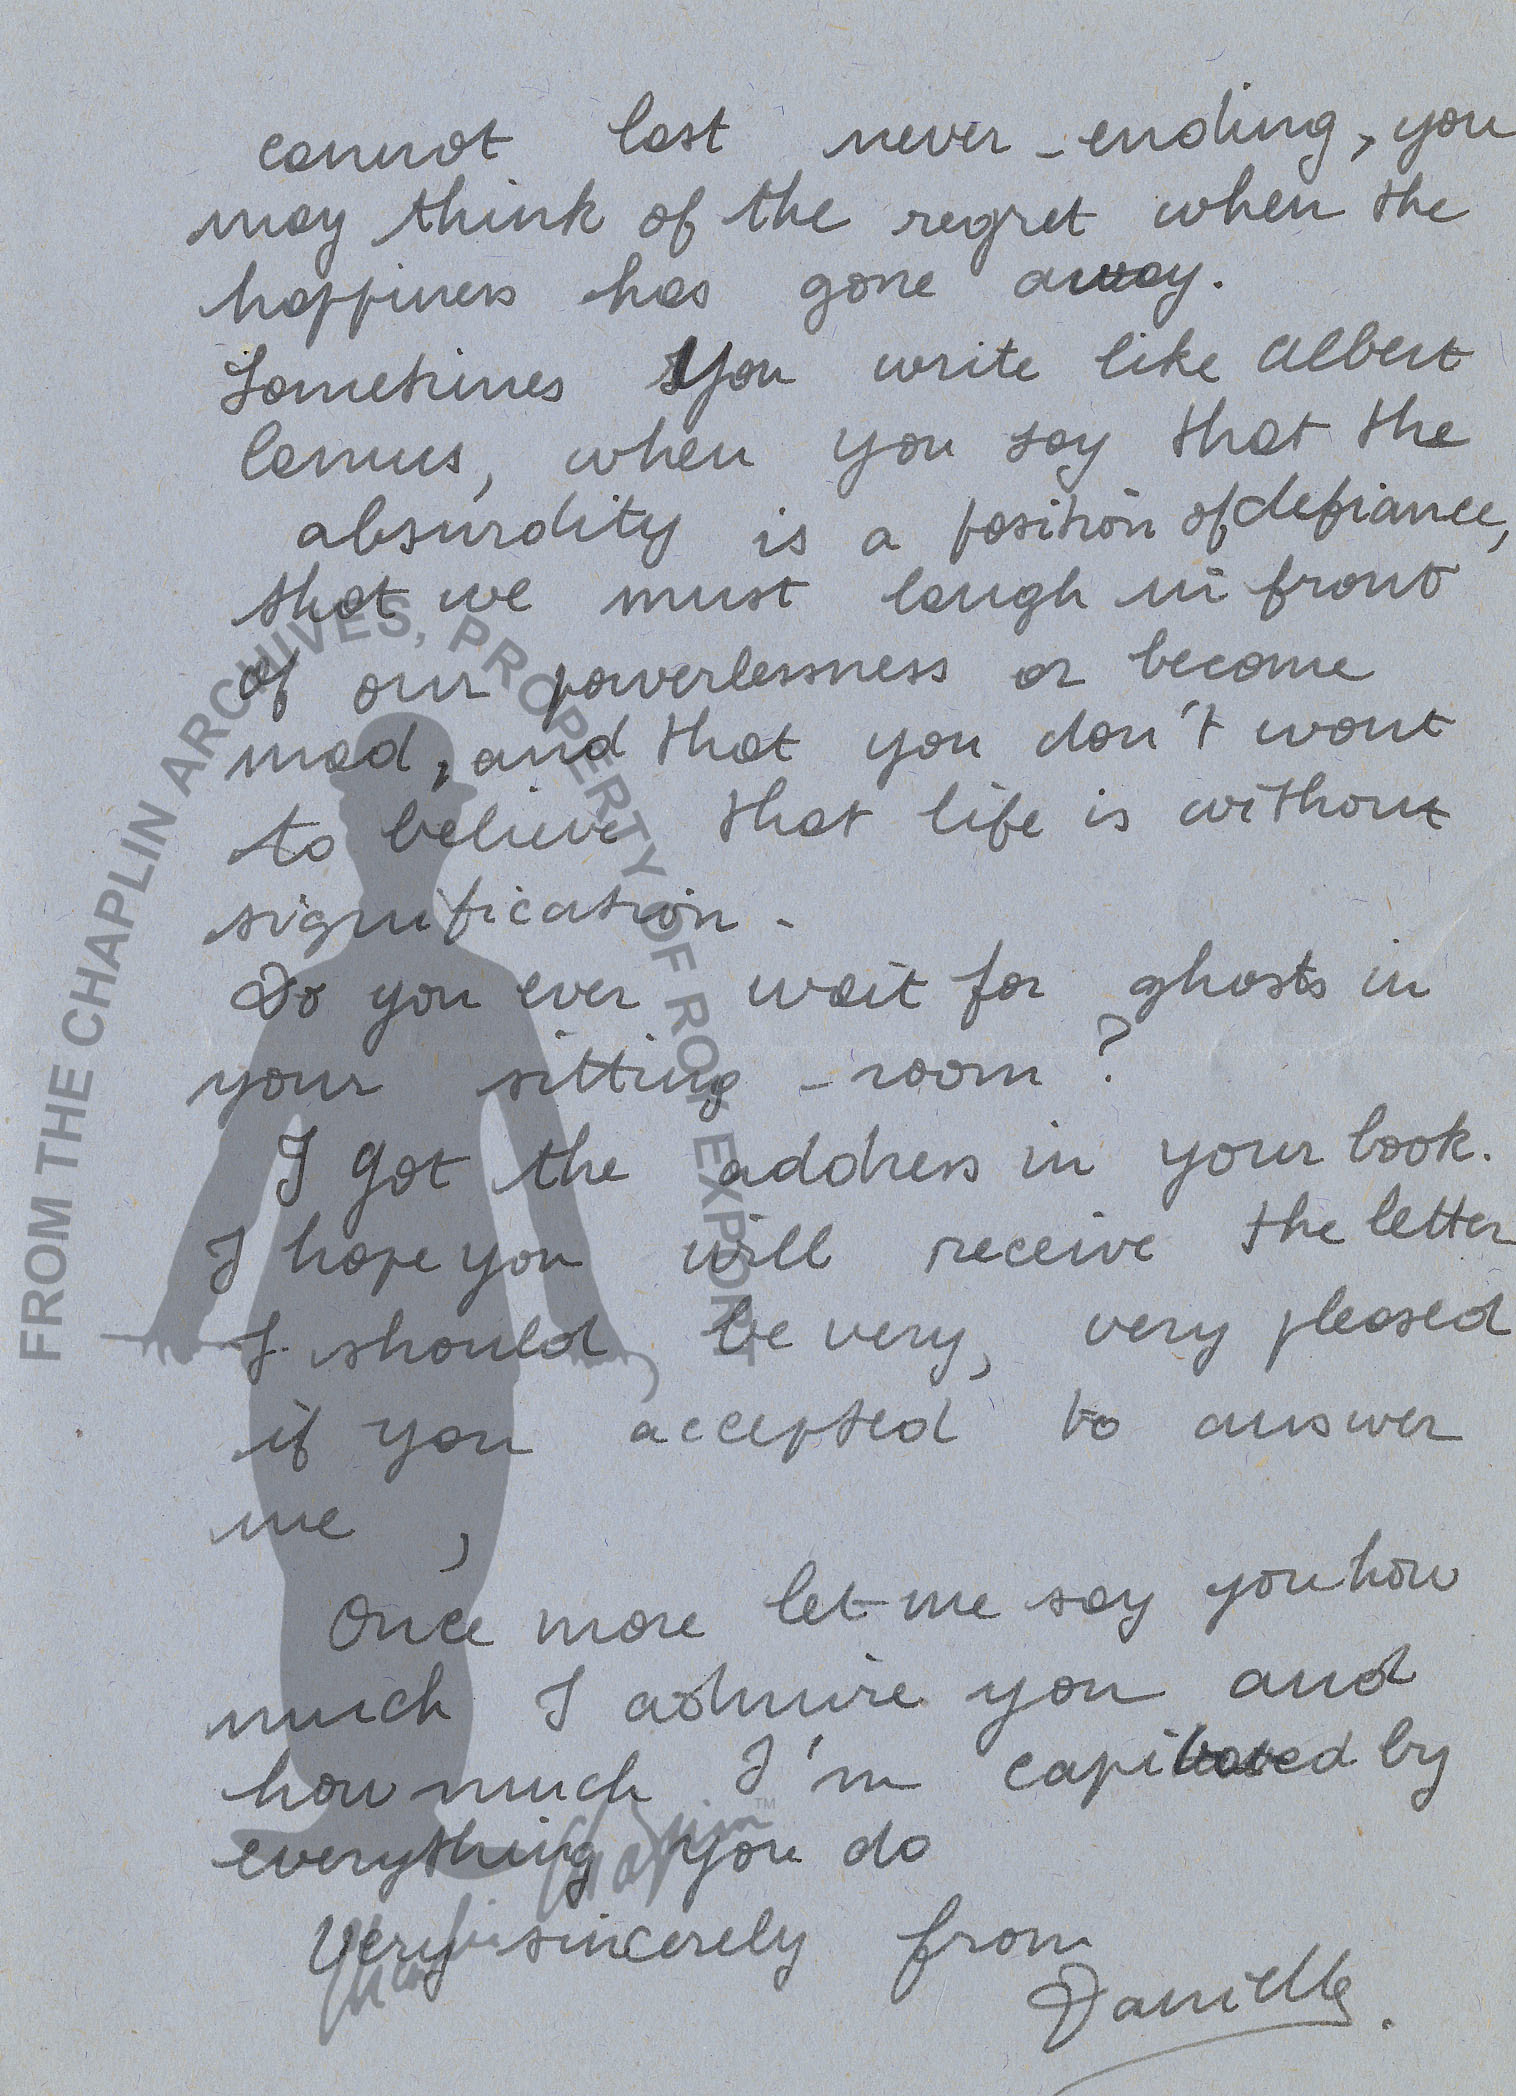 cannot last never-ending, you
may think of the regret when the
happiness has gone away.
Sometimes you write like Albert
Camus, when you say that the
absurdity is a position of defiance,
that we must laugh in front
of our powerlessness or become
mad, and that you don't want
to believe that life is without
signification -
Do you ever wait for ghosts in
your sitting-room?
I got the address in your book.
I hope you will receive the letter
I should be very, very pleased
if you accepted to answer
me,
Once more let me say you how
much I admire you and
how much I'm by
everything you do
Very sincerely from
Danielle.
FROM THE CHAPLIN ARCHIVES, PROPERTY OF ROY EXPORT
Charlie Chaplin™